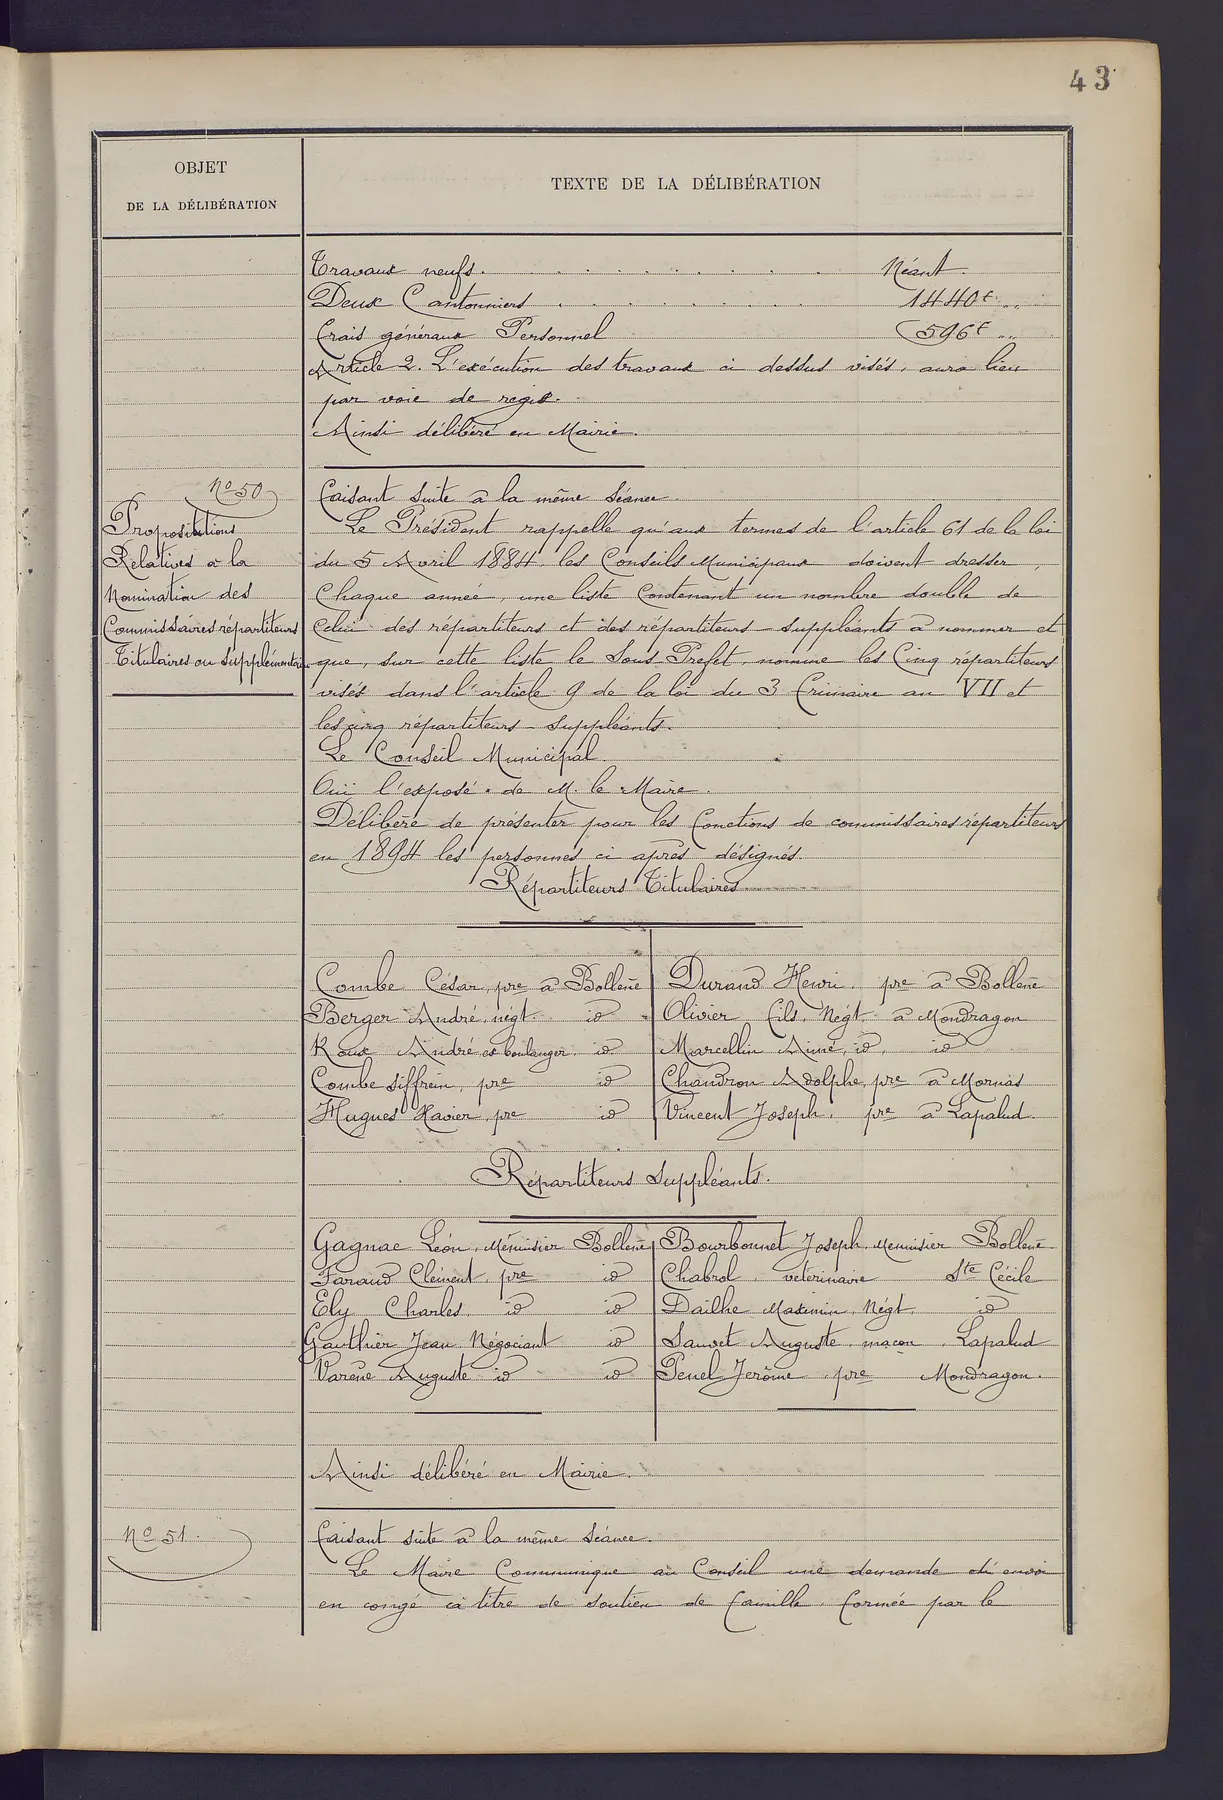 43
OBJET
DE LA DÉLIBÉRATION
TEXTE DE LA DÉLIBÉRATION
Travaux neufs. . . . . . . . . . Néant.
Deux Cantonniers . . . . . . . 1440f „
Frais généraux Personnel 596f „
Article 2. L'exécution des travaux ci dessus visés, aura lieu
par voie de régie.
Ainsi délibéré en Mairie.
No 50
Propositions
Relatives à la
Nomination des
Commissaires répartiteurs
Titulaires ou Supplémentaires
Faisant suite à la même séance.
Le Président rappelle qu'aux termes de l'article 61 de la loi
du 5 Avril 1884, les Conseils Municipaux doivent dresser,
Chaque année, une liste contenant un nombre double de
Celui des répartiteurs et des répartiteurs-suppléants à nommer et
que, sur cette liste, le Sous-Préfet, nomme les Cinq répartiteurs
visés dans l'article 9 de la loi du 3 Frimaire an VII et
les cinq répartiteurs-suppléants.
Le Conseil Municipal.
Oui l'exposé de M. le Maire.
Délibère de présenter pour les fonctions de commissaires répartiteurs
en 1894 les personnes ci après désignés.
Répartiteurs Titulaires
Combe César, pre à Bollène | Durand Henri, pre à Bollène
Berger André, negt. id | Olivier fils, Négt à Mondragon
Roux André, ex boulanger, id | Marcellin Aimé, id, id
Combe Siffrein, pre id | Chandron Adolphe, pre à Mornas
Hugues Xavier, pre id | Vincent Joseph, pre à Lapalud.
Répartiteurs Suppléants.
Gagnac Léon, Ménuisier Bollène | Bourbonnet Joseph, Menuisier Bollène
Faraud Clément, pre id | Chabrol, vétérinaire Ste Cécile
Ely Charles, id id | Dailhe Maximin, Négt. id
Gauthier Jean Négociant id | Sauvet Auguste, maçon, Lapalud
Varène Auguste id id | Penel Jérôme, pre Mondragon.
Ainsi délibéré en Mairie.
No 51.
Faisant suite à la même séance.
Le Maire Communique au Conseil une demande d'envoi
en congé à titre de soutien de famille, formée par le